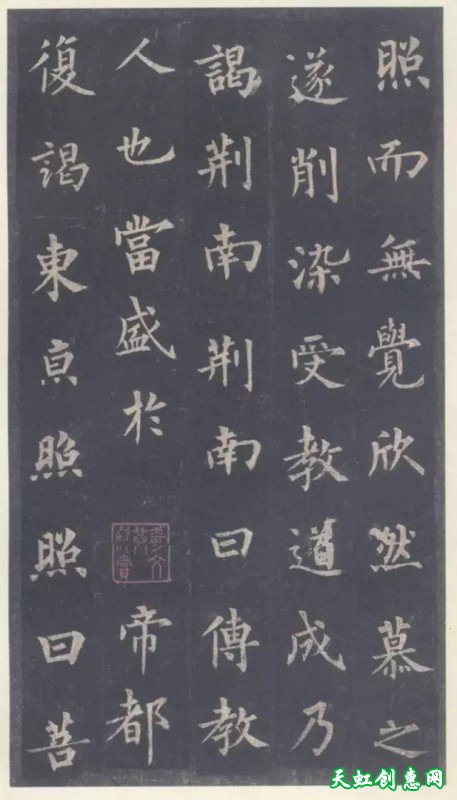 照而無覺欣然慕之
遂削染受教道成乃
謁荆南荆南曰傳教
人也當盛於帝都
復謁東京照照曰菩
天虹创惠网